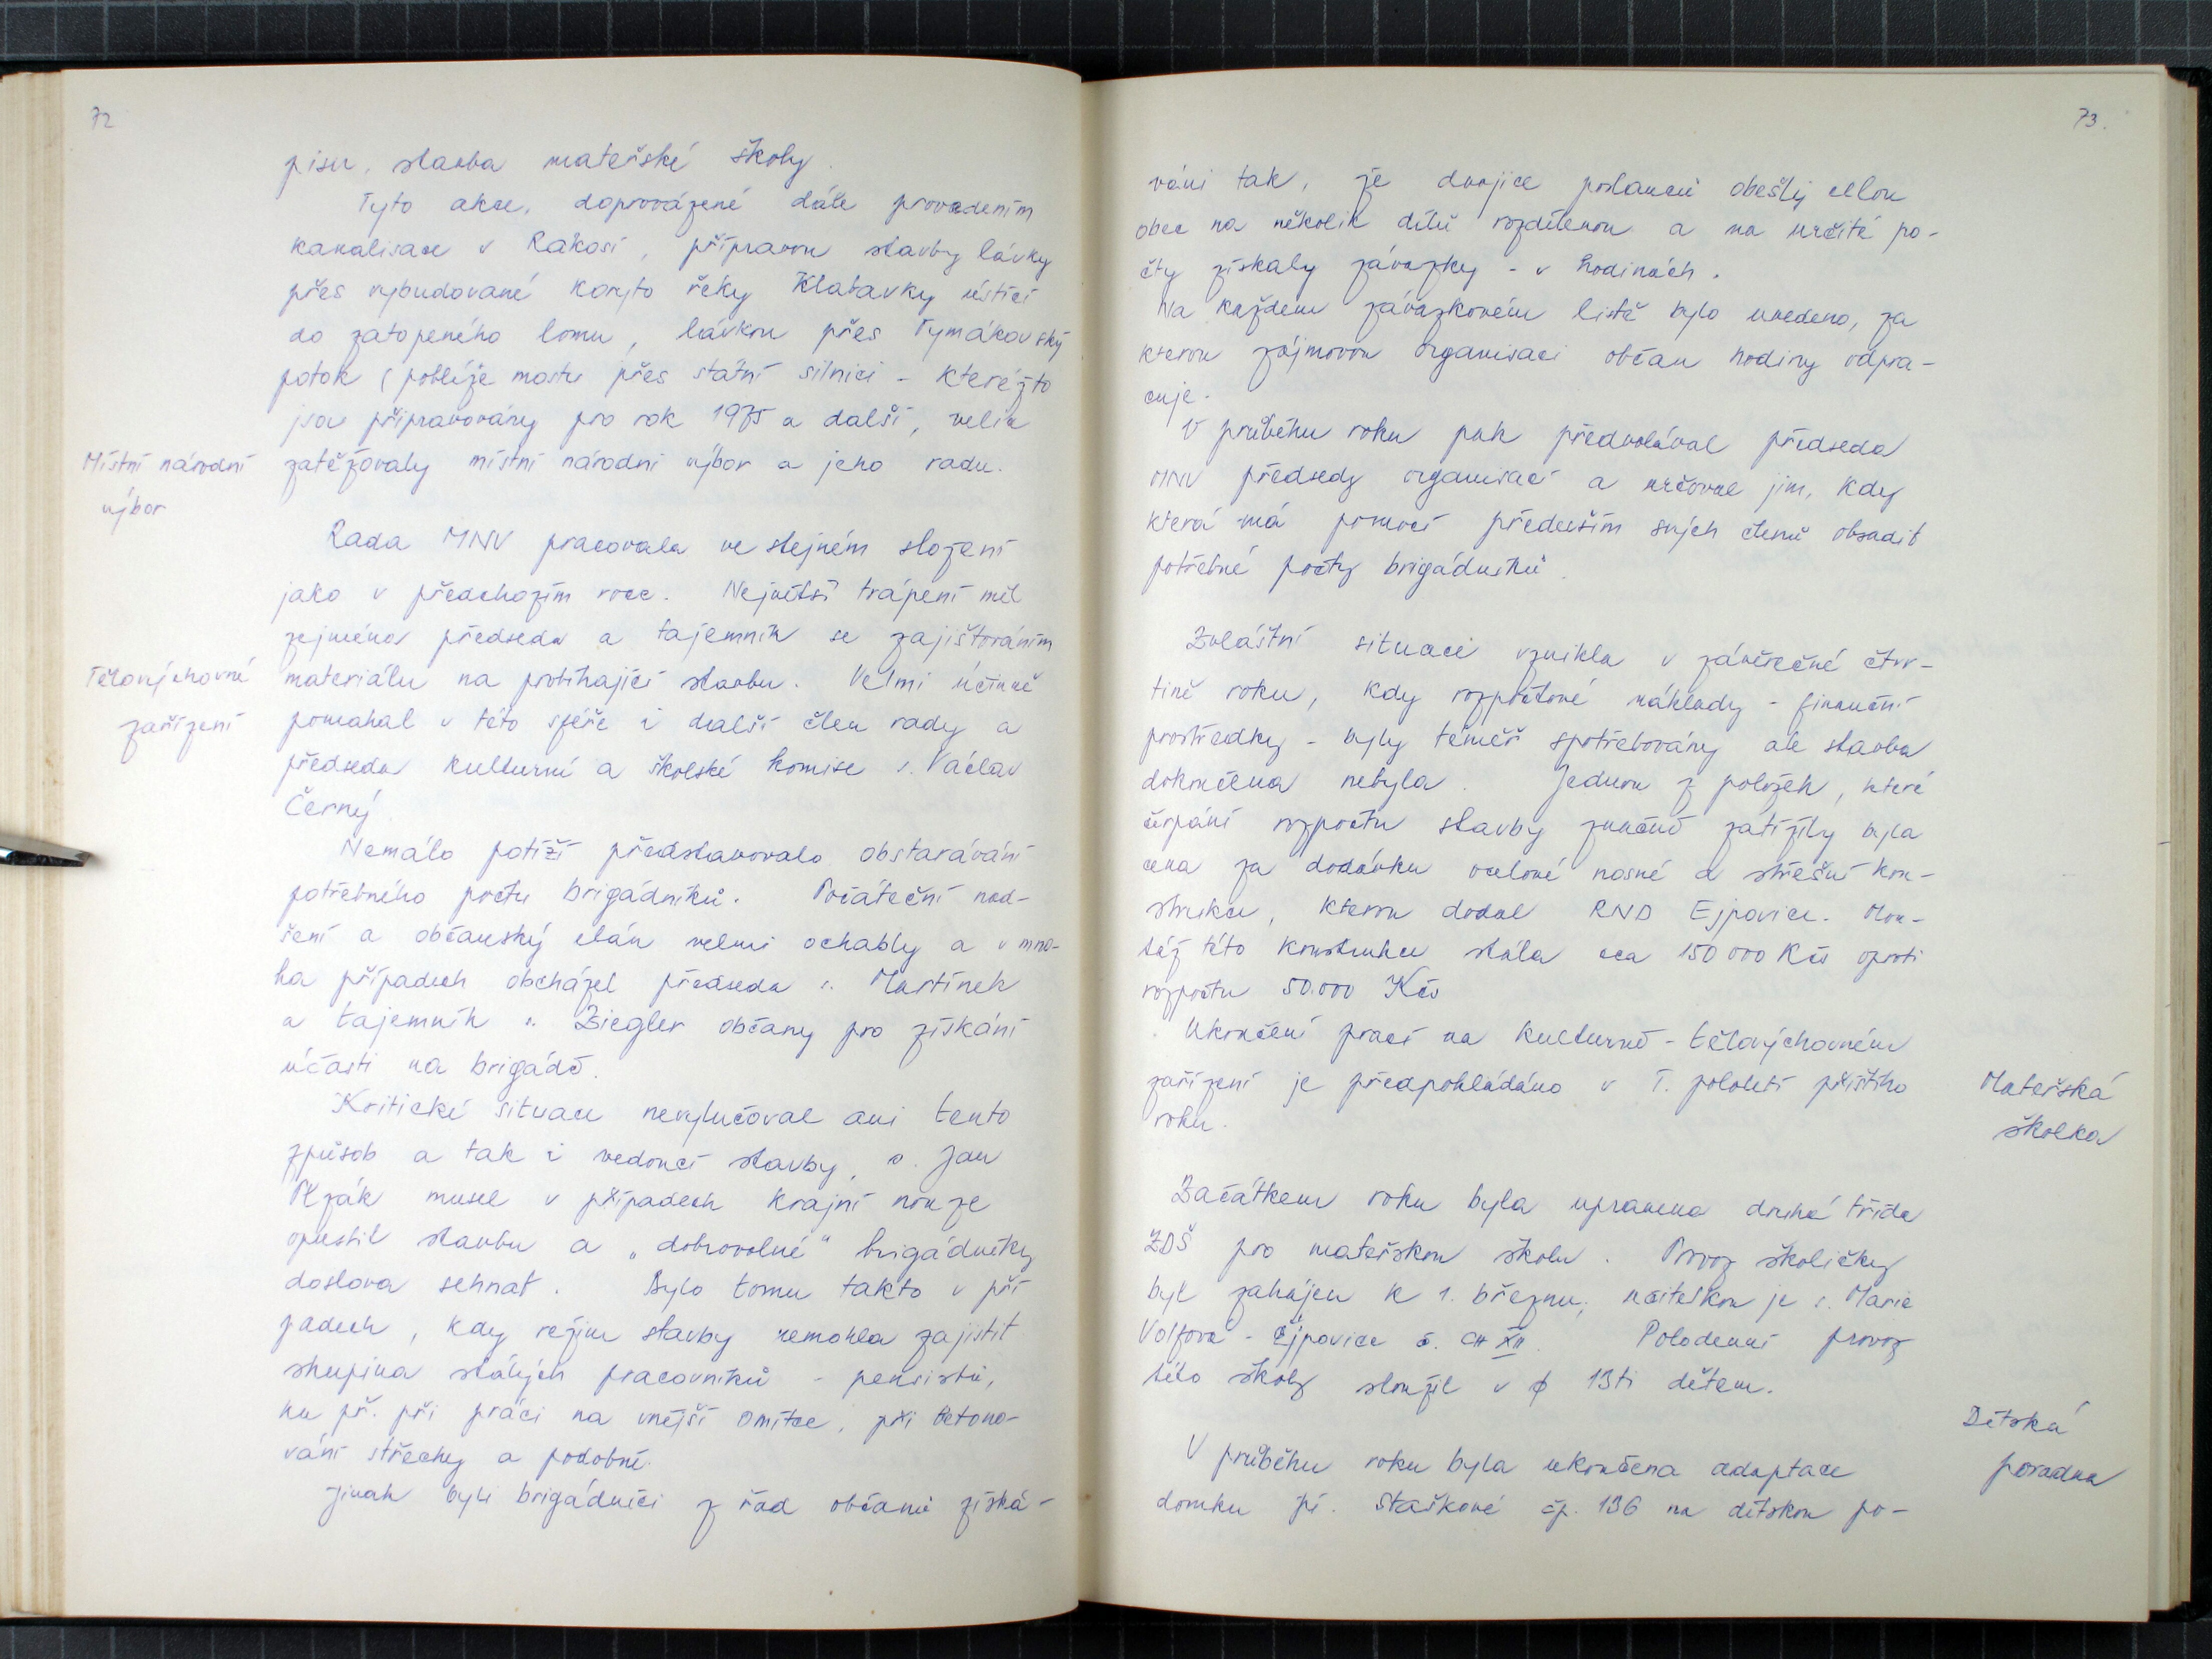 72
pisu, stavba mateřské školy.
Tyto akce, doprovázené dále provedením
kanalisace v Rákosí, přípravou stavby lávky
přes vybudované koryto řeky Klabavky ústící
do zatopeného lomu, lávkou přes Tymákovský
potok (poblíže mostu přes státní silnici - kteréžto
jsou připravovány pro rok 1975 a další, velice
Místní národní
výbor
zatěžovaly místní národní výbor a jeho radu.
Rada MNV pracovala ve stejném složení
jako v předchozím roce. Největší trápení měl
zejména předseda a tajemník se zajišťováním
Tělovýchovné
zařízení
materiálu na probíhající stavbu. Velmi účinně
pomáhal v této sféře i další člen rady a
předseda kulturní a školské komise s. Václav
Černý.
Nemálo potíží představovalo obstarávání
potřebného počtu brigádníků. Počáteční nad-
šení a občanský elán velmi ochably a v mno-
ha případech obcházel předseda s. Martínek
a tajemník s. Ziegler občany pro získání
účasti na brigádě.
Kritické situace nevylučoval ani tento
způsob a tak i vedoucí stavby, s. Jan
Plzák musel v případech krajní nouze
opustit stavbu a „dobrovolné" brigádníky
doslova sehnat. Bylo tomu takto v pří
padech, kdy režim stavby nemohla zajistit
skupina stálých pracovníků - pensistů,
na př. při práci na vnější omítce, při betono-
vání střechy a podobně.
Jinak byli brigádníci z řad občanů získá-
73.
váni tak, že dvojice poslanců obešly celou
obec na několik dílů rozdělenou a na určité po-
čty získaly závazky - v hodinách.
Na každém závazkovém listě bylo uvedeno, za
kterou zájmovou organisaci občan hodiny odpra-
cuje.
V průběhu roku pak předvolával předseda
MNV předsedy organisací a určoval jim, kdy
která má pomocí především svých členů obsadit
potřebné počty brigádníků.
Zvláštní situace vznikla v závěrečné čtvr-
tině roku, kdy rozpočtové náklady - finanční
prostředky - byly téměř spotřebovány ale stavba
dokončena nebyla. Jednou z položek, které
čerpání rozpočtu stavby značně zatížily byla
cena za dodávku ocelové nosné a střešní kon-
strukce, kterou dodal RND Ejpovice. Mon-
táž této konstrukce stála cca 150 000 Kčs oproti
rozpočtu 50.000 Kčs
Ukončení prací na kulturně - tělovýchovném
zařízení je předpokládáno v I. pololetí příštího
roku.
Mateřská
školka
Začátkem roku byla upravena druhá třída
ZDŠ pro mateřskou školu. Provoz školičky
byl zahájen k 1. březnu, učitelkou je s. Marie
Volfová - Ejpovice č. Polodenní provoz
této školy sloužil v ϕ 13ti dětem.
Dětská
poradna
V průběhu roku byla ukončena adaptace
domku pí. Staškové čp. 136 na dětskou po-